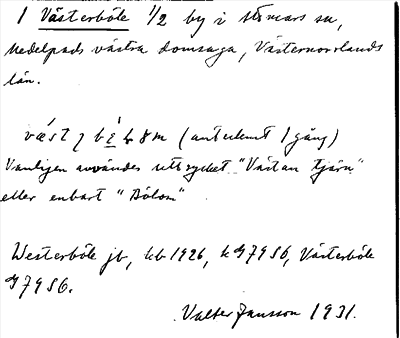 1 Västerböle 1/2 by i Stöms sn,
Medelpads västra domsaga, Västernorrlands
län.
(antecknat 1 gång)
Vanligen användes uttrycket "Västan tjärn"
eller enbart "Bölom"
Westerböle jb, kb 1926, k G7956, Västerböle
G7956.
Valter Jansson 1931.